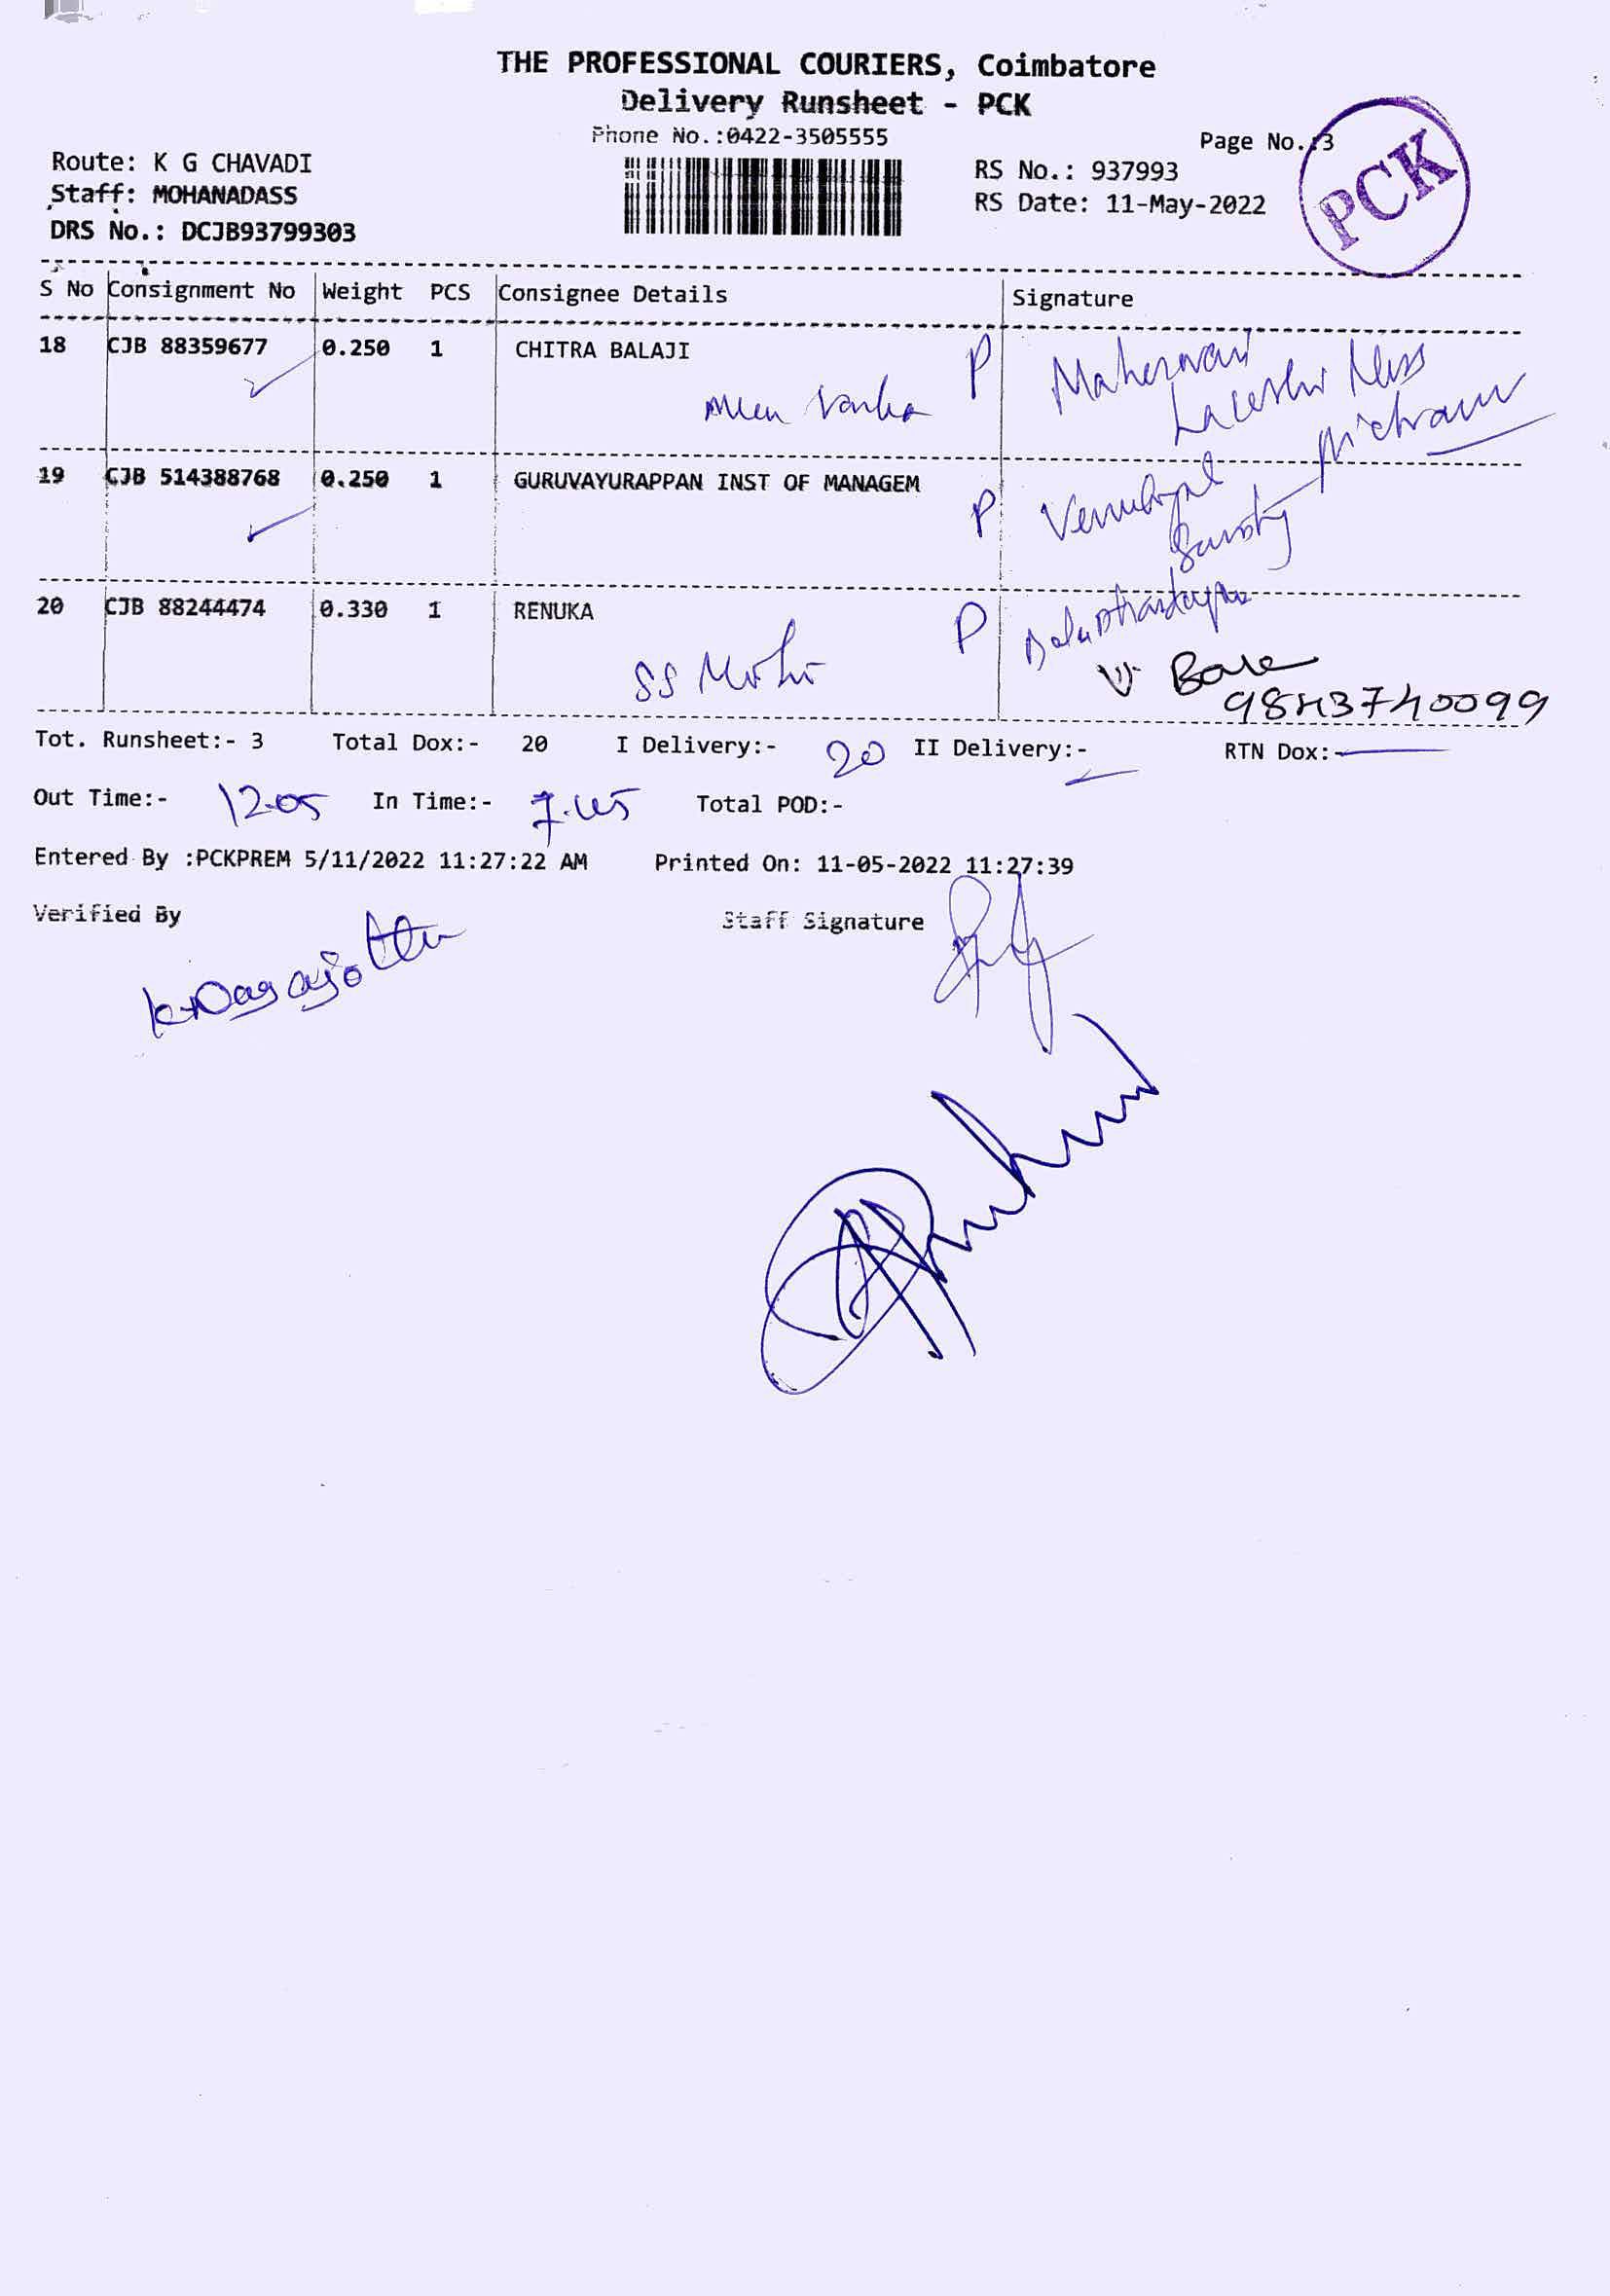 THE PROFESSIONAL COURIERS, Coimbatore
Delivery Runsheet - PCK
Phone No.:0422-3505555
Page No.:3
PCK
Route: K G CHAVADI
RS No.: 937993
Staff: MOHANADASS
RS Date: 11-May-2022
DRS No.: DCJB93799303
S No Consignment No Weight PCS Consignee Details Signature
18 CJB 88359677 0.250 1 CHITRA BALAJI P
19 CJB 514388768 0.250 1 GURUVAYURAPPAN INST OF MANAGEM P
20 CJB 88244474 0.330 1 RENUKA P
SS
9843740099
Tot. Runsheet:- 3 Total Dox:- 20 I Delivery:- 20 II Delivery:- RTN Dox:-
Out Time:- 12.05 In Time:- 7.45 Total POD:-
Entered By :PCKPREM 5/11/2022 11:27:22 AM Printed On: 11-05-2022 11:27:39
Verified By Staff Signature